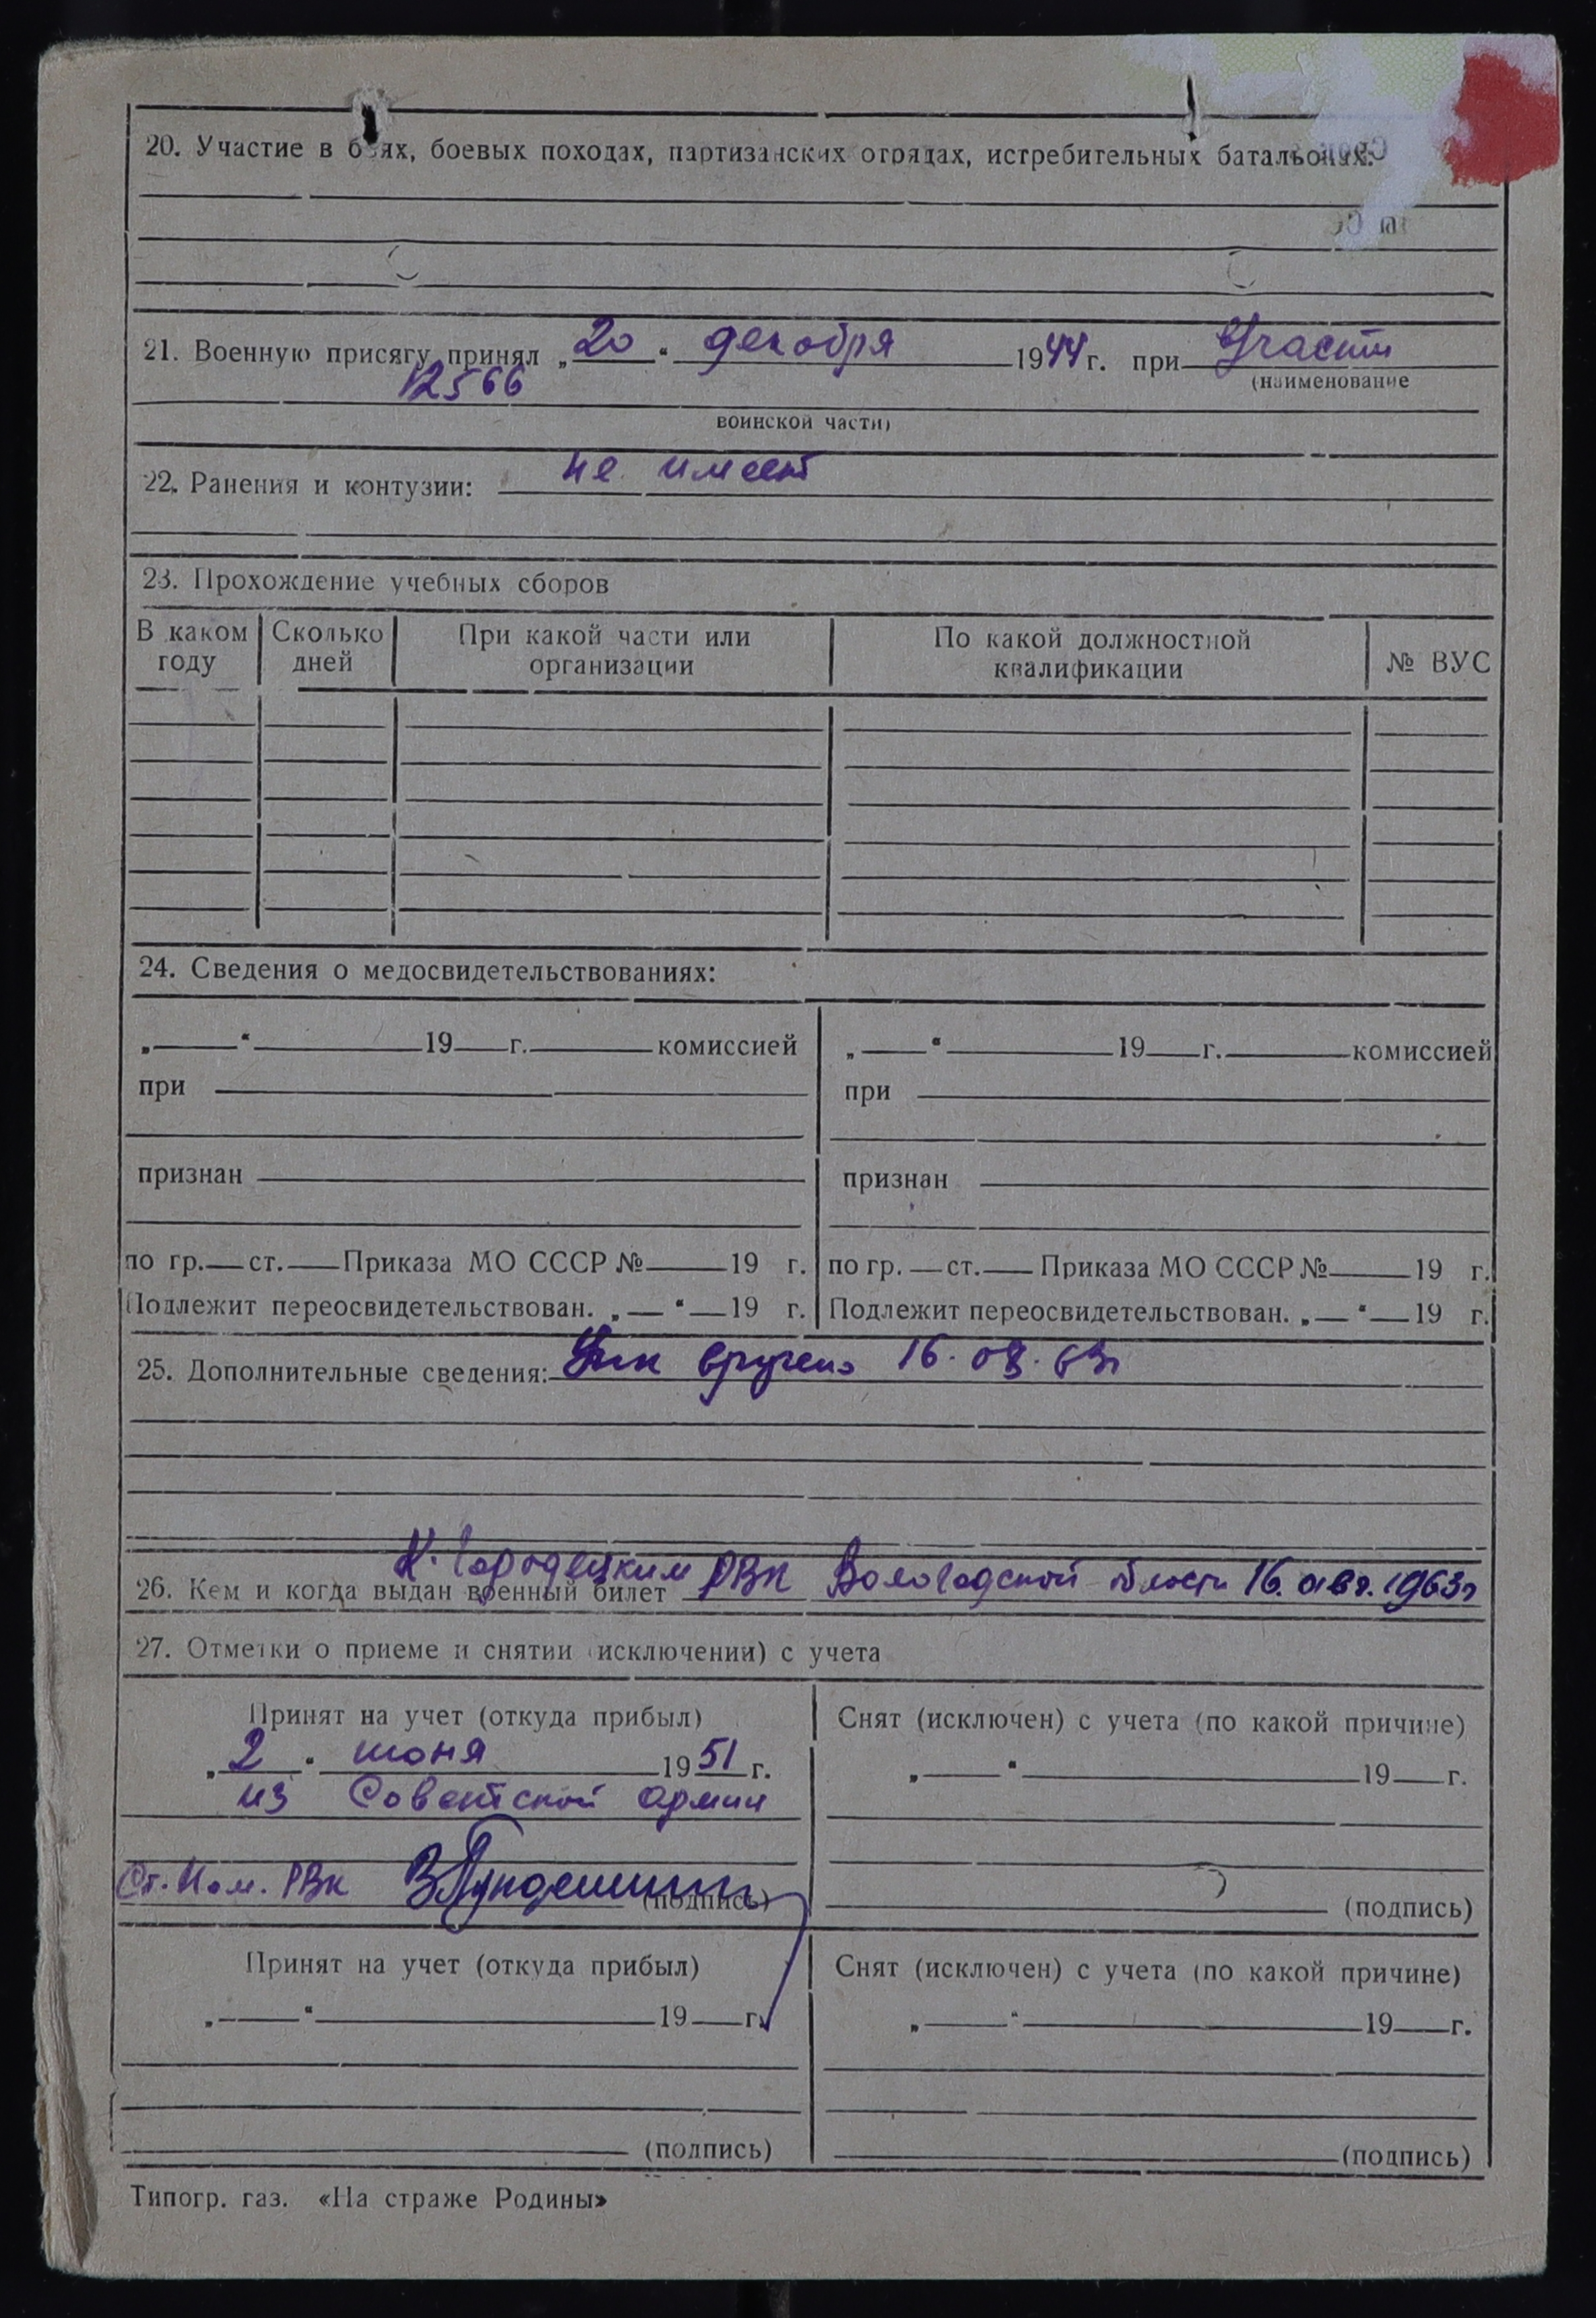 20. Участие в боях, боевых походах, партизанских отрядах, истребительных батальонах:
21. Военную присягу принял „20“ декабря 1944 г. при в/части
12566
(наименование
воинской части)
22. Ранения и контузии: не имеет
23. Прохождение учебных сборов
В каком году | Сколько дней | При какой части или организации | По какой должностной квалификации | № ВУС
24. Сведения о медосвидетельствованиях:
„ “ 19 г. комиссией | „ “ 19 г. комиссией
при | при
признан | признан
по гр. ст. Приказа МО СССР № 19 г. | по гр. ст. Приказа МО СССР № 19 г.
Подлежит переосвидетельствован. „ “ 19 г. | Подлежит переосвидетельствован. „ “ 19 г.
25. Дополнительные сведения: вручено 16.08.63г
К. Городецким РВК Вологодской области 16. авг. 1963г
26. Кем и когда выдан военный билет
27. Отметки о приеме и снятии (исключении) с учета
Принят на учет (откуда прибыл) | Снят (исключен) с учета (по какой причине)
„2“ июня 1951 г. | „ “ 19 г.
из Советской Армии
Ст. пом. РВК (подпись) | (подпись)
Принят на учет (откуда прибыл) | Снят (исключен) с учета (по какой причине)
„ “ 19 г. | „ “ 19 г.
(подпись) | (подпись)
Типогр. газ. «На страже Родины»